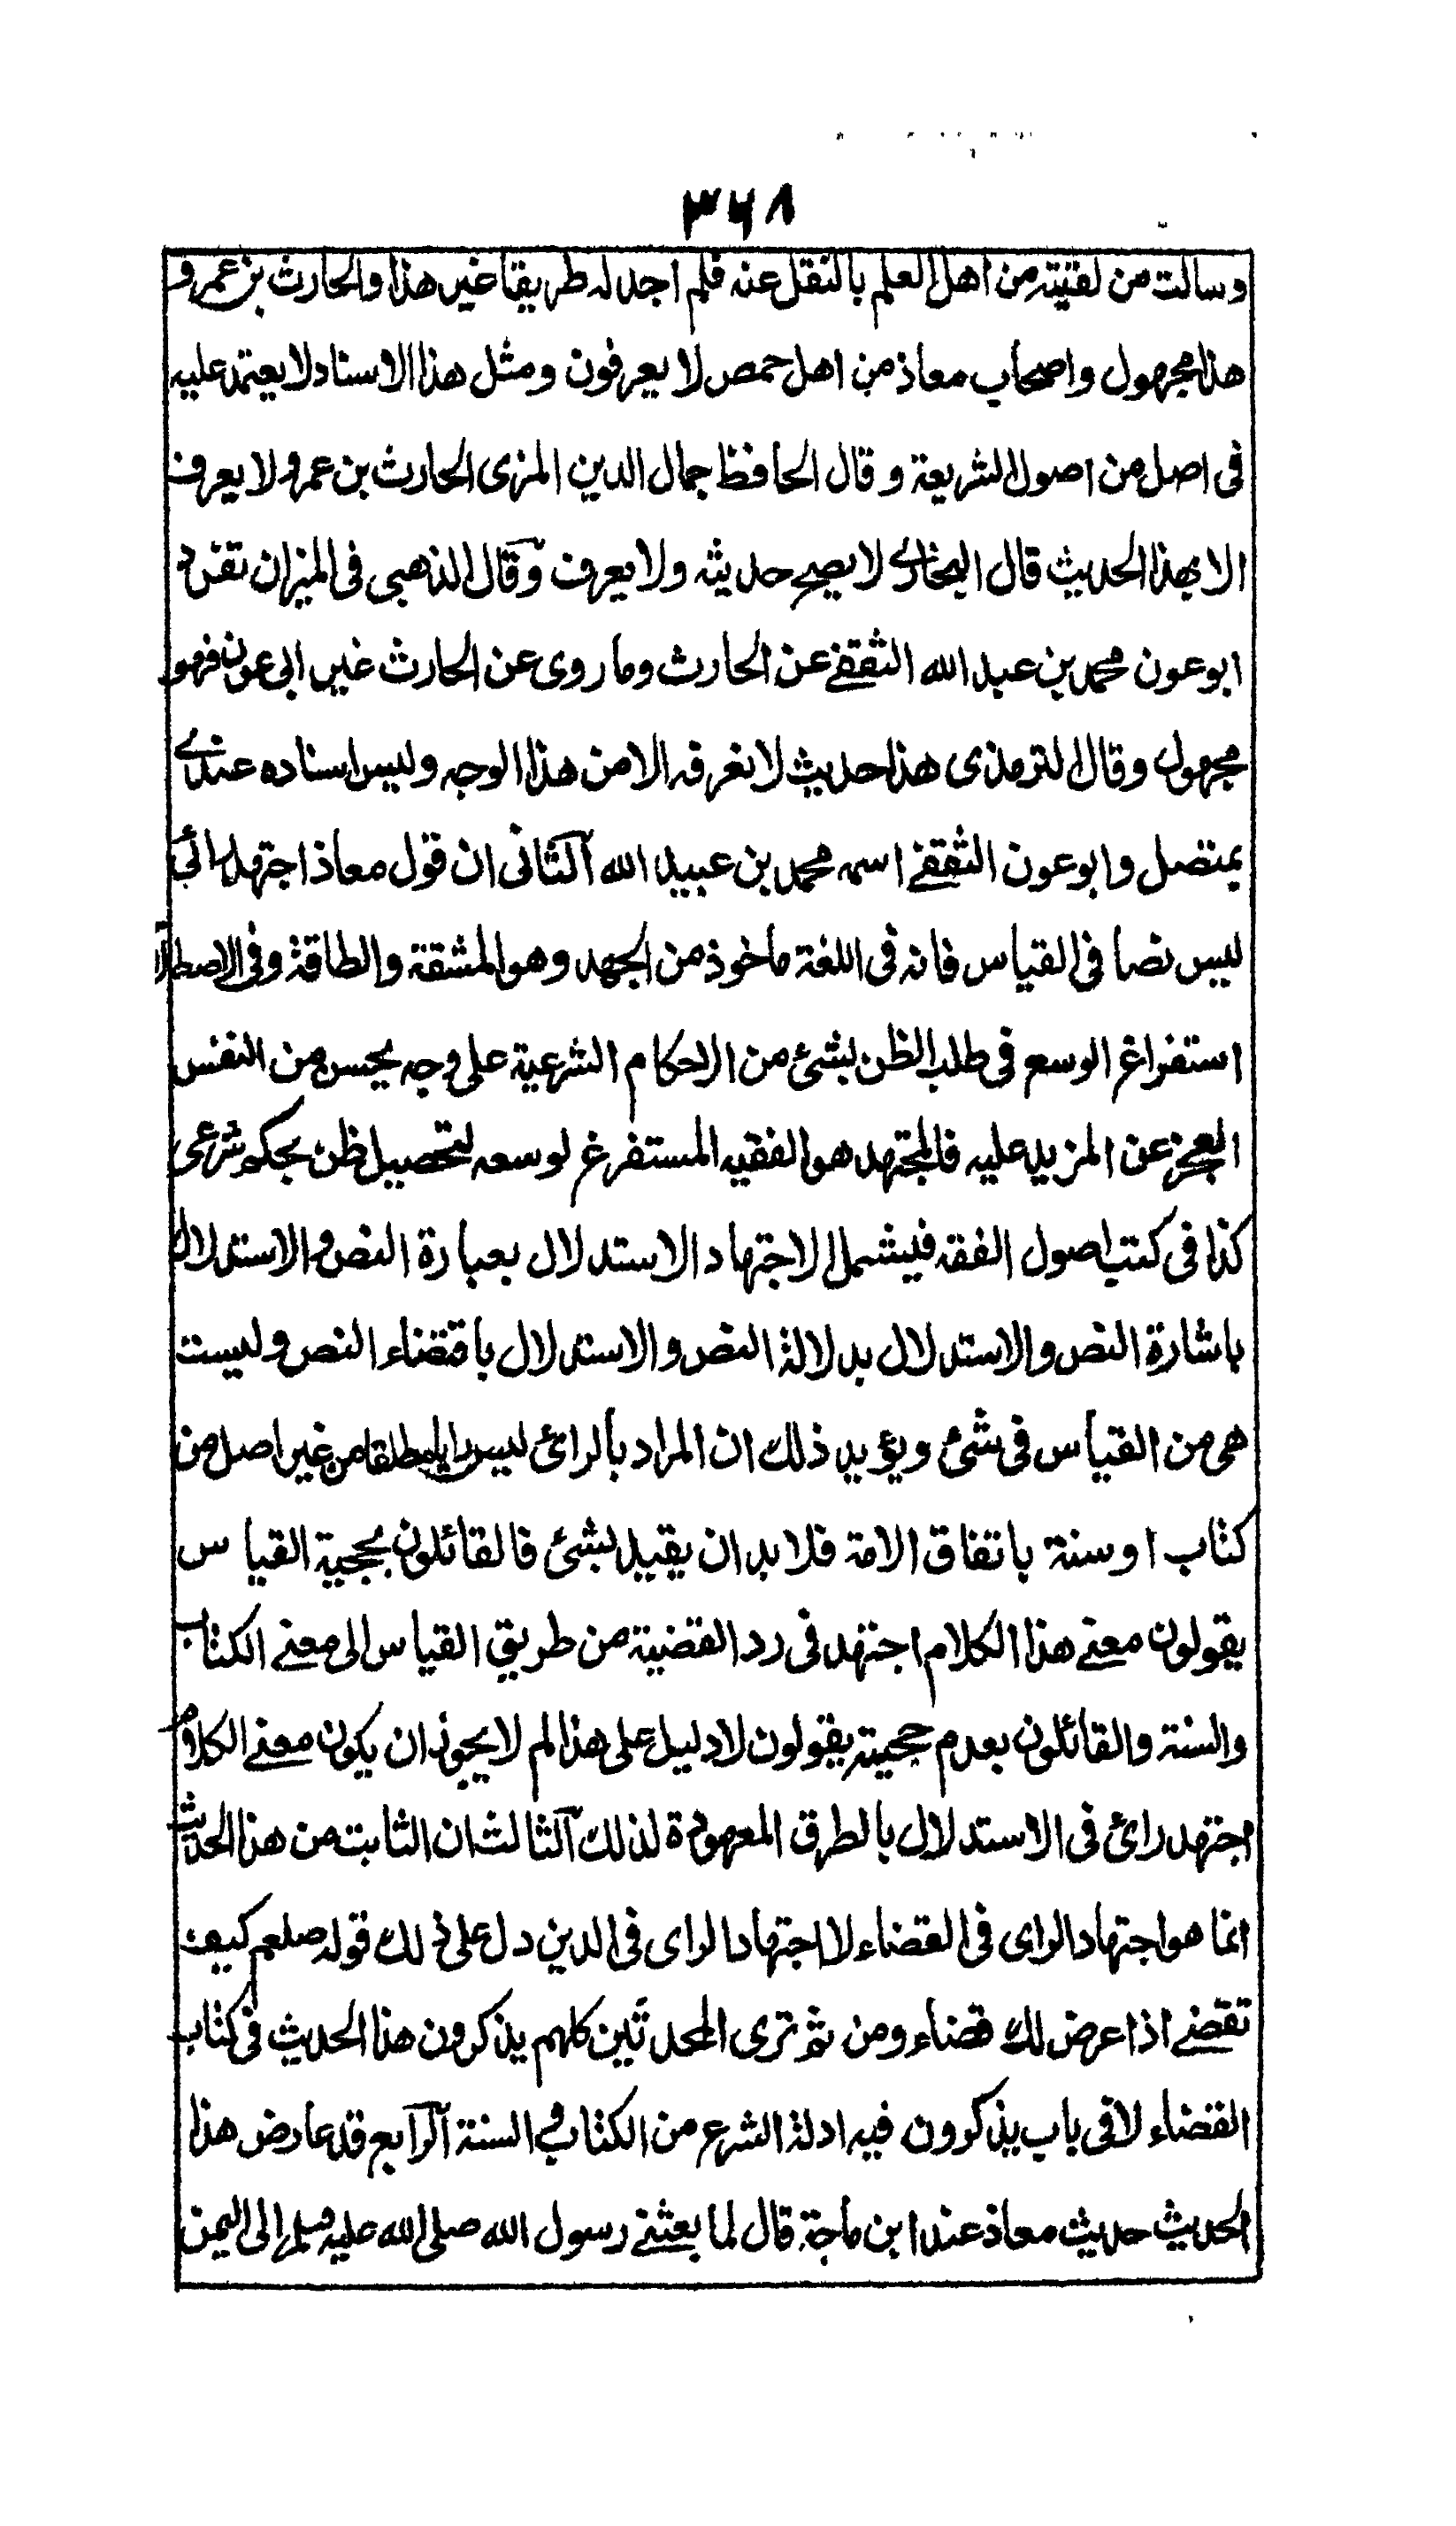 ٣٦٨
وسالت من لقيته من اهل العلم بالنقل عنه فلم اجد له طريقا غير هذا والحارث بن عمرو
هذا مجهول واصحاب معاذ من اهل حمص لا يعرفون ومثل هذا الاسناد لا يعتمد عليه
فى اصل من اصول الشريعة وقال الحافظ جمال الدين المزى الحارث بن عمرو لا يعرف
الا بهذا الحديث قال البخارى لا يصح حديثه ولا يعرف وقال الذهبى فى الميزان تفرد
ابو عون محمد بن عبد الله الثقفے عن الحارث وما روى عن الحارث غير ابى عون فهو
مجهول وقال الترمذى هذا حديث لا نعرفه الا من هذا الوجه وليس اسناده عندے
بمتصل وابو عون الثقفے اسمه محمد بن عبيد الله آلثانى ان قول معاذ اجتهد رائى
ليس نصا فى القياس فانه فى اللغة ماخوذ من الجهد وهو المشقة والطاقة وفى الاصطلاح
استفراغ الوسع فى طلب الظن بشئ من الاحكام الشرعية على وجه يحس من النفس
العجز عن المزيد عليه فالمجتهد هو الفقيه المستفرغ لوسعه لتحصيل ظن بحكم شرعى
كذا فى كتب اصول الفقه فيشمل الاجتهاد الاستدلال بعبارة النص والاستدلال
باشارة النص والاستدلال بدلالة النص والاستدلال باقتضاء النص وليست
هى من القياس فى شئ ويؤيد ذلك ان المراد بالرائ ليس رايا مطلقا من غير اصل من
كتاب او سنة باتفاق الامة فلا بد ان يقيد بشئ فالقائلون بحجية القياس
يقولون معنے هذا الكلام اجتهد فى رد القضية من طريق القياس الى معنے الكتاب
والسنة والقائلون بعدم حجيته يقولون لا دليل على هذا لم لا يجوز ان يكون معنے الكلام
اجتهد رائ فى الاستدلال بالطرق المعهودة لذلك آلثالث ان الثابت من هذا الحديث
انما هو اجتهاد الراى فى القضاء لا اجتهاد الراى فى الدين دل على ذلك قوله صلعم كيف
تقضے اذا عرض لك قضاء ومن ثم ترى المحدثين كلهم يذكرون هذا الحديث فى كتاب
القضاء لا فى باب يذكرون فيه ادلة الشرع من الكتاب والسنة آلرابع قد عارض هذا
الحديث حديث معاذ عند ابن ماجة قال لما بعثنے رسول الله صلى الله عليه وسلم الى اليمن